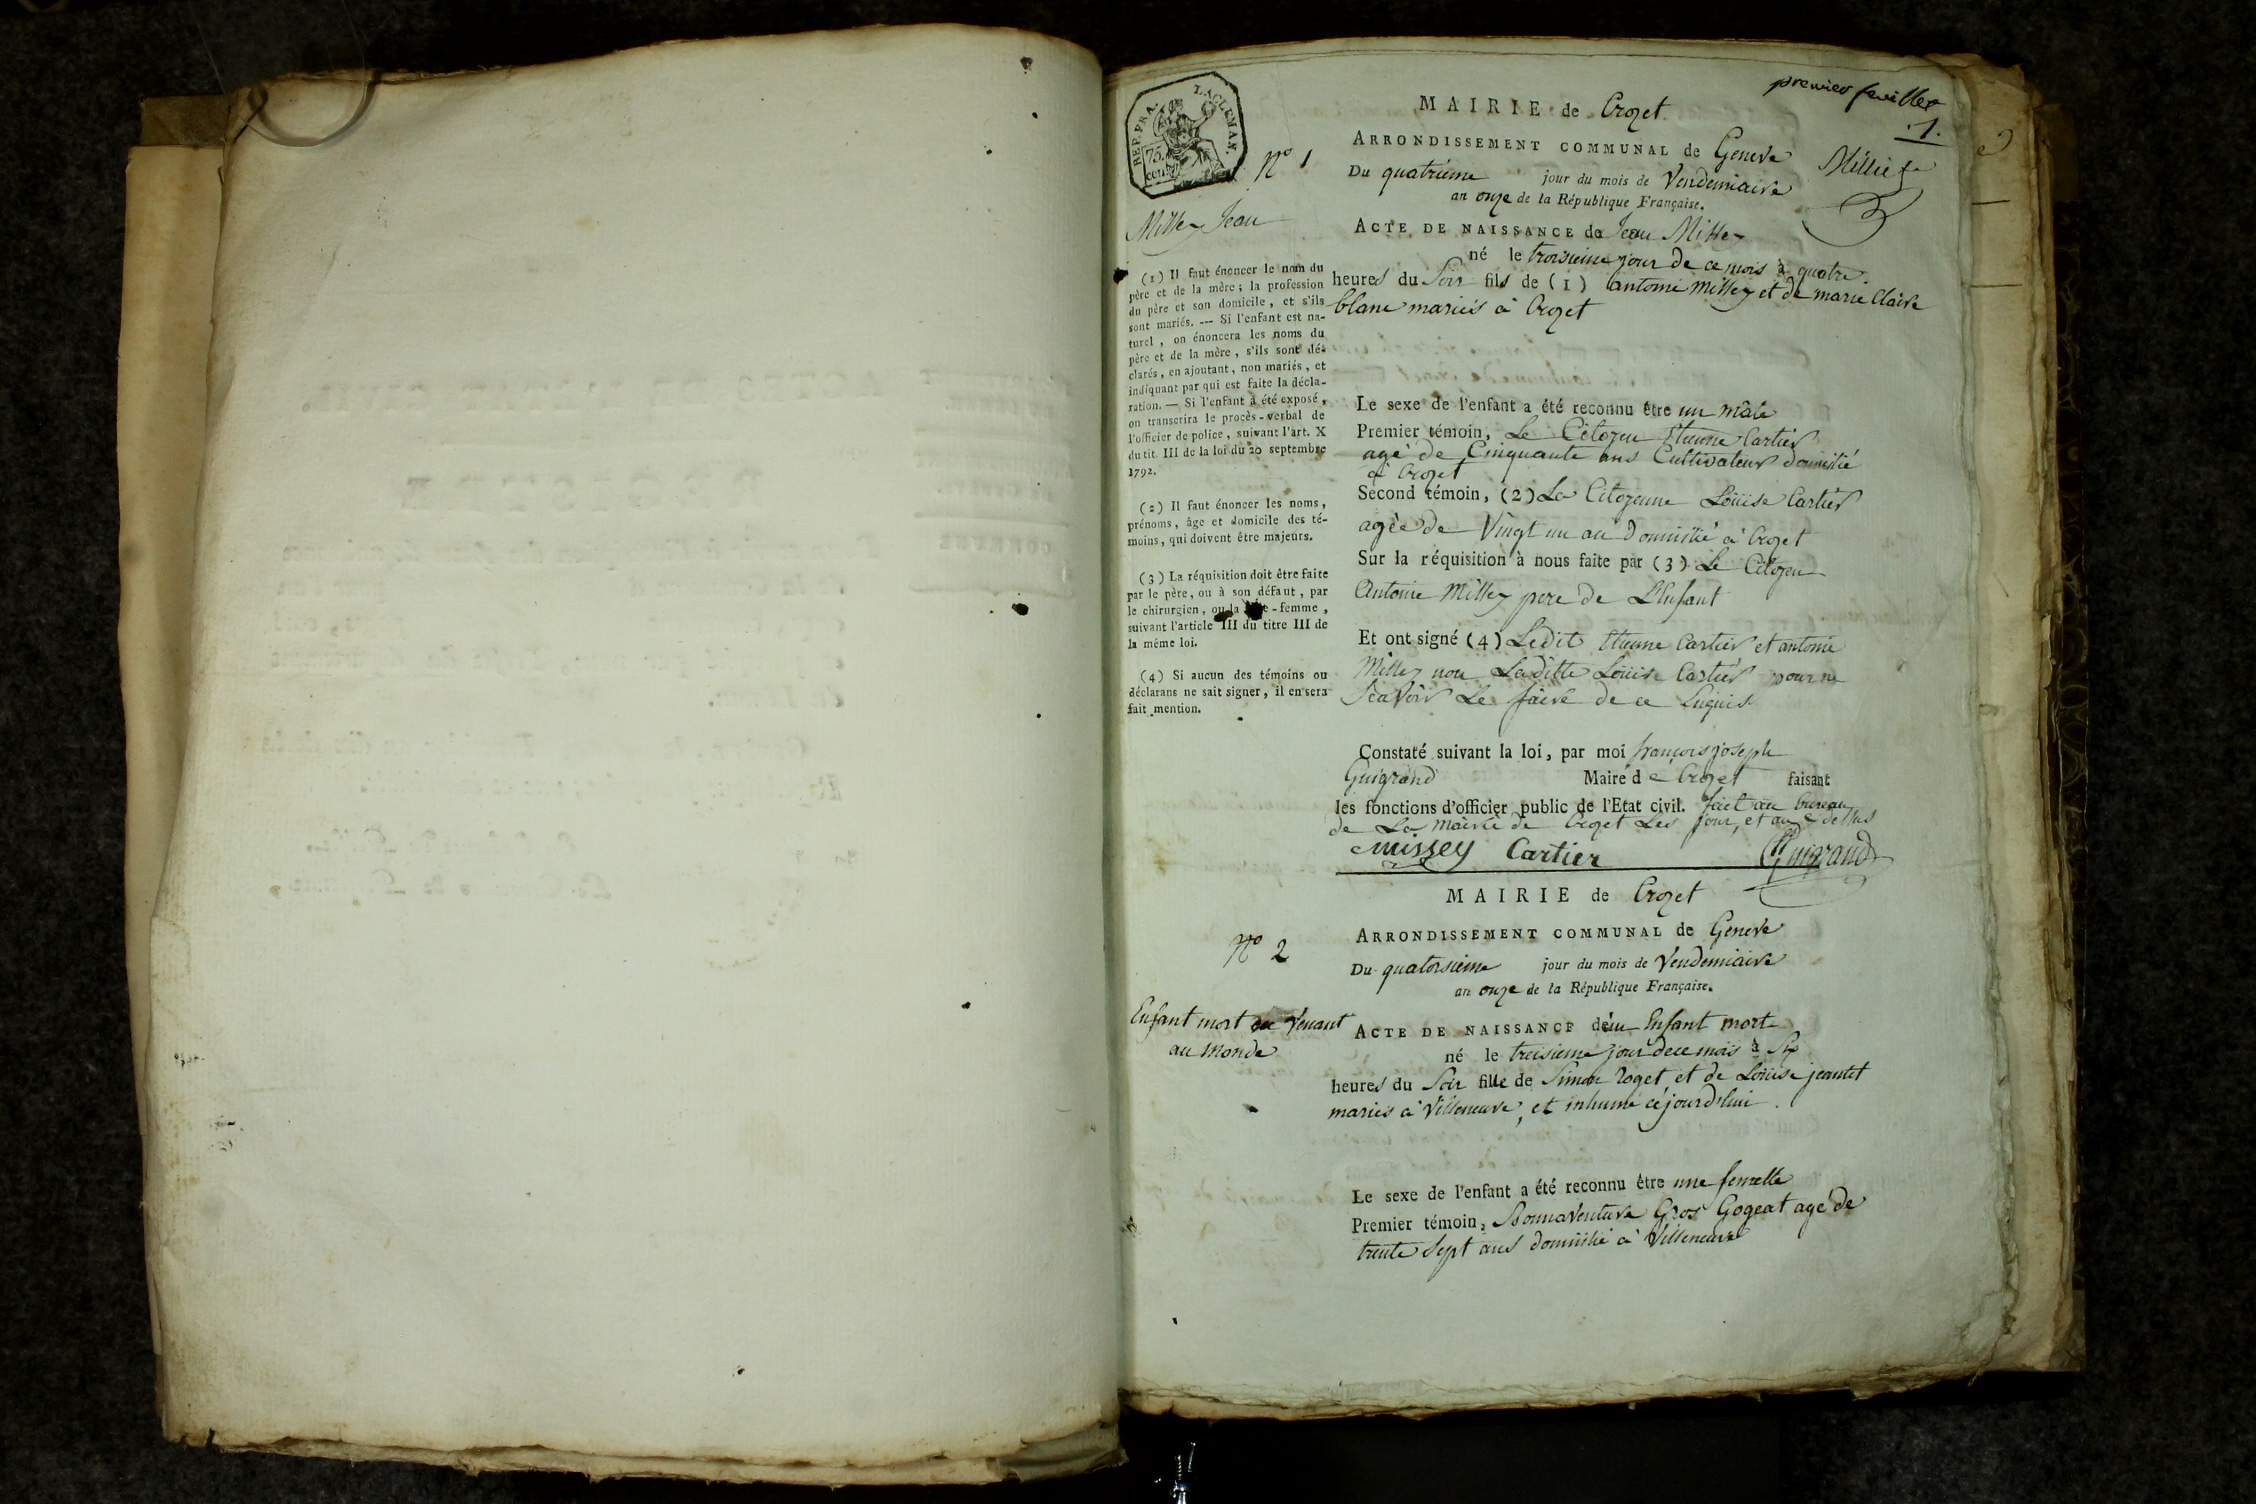 premier feuillet
.1.
Millie
REP. FRA.
75.
cent.
N° 1
MAIRIE de Crozet.
ARRONDISSEMENT COMMUNAL de Geneve
Du quatriéme jour du mois de Vendemiaire
an onze de la République Française.
Missey Jean
ACTE DE NAISSANCE de Jean Missey
né le troisieme jour de ce mois à quatre
heures du Soir fils de (1) antoine Missey et de marie Claire
blanc mariés à Crozet
(1) Il faut énoncer le nom du
père et de la mère; la profession
du père et son domicile, et s'ils
sont mariés. --- Si l'enfant est na-
turel, on énoncera les noms du
père et de la mère, s'ils sont dé-
clarés, en ajoutant, non mariés, et
indiquant par qui est faite la décla-
ration. — Si l'enfant a été exposé,
on transcrira le procès-verbal de
l'officier de police, suivant l'art. X
du tit. III de la loi du 20 septembre
1792.
(2) Il faut énoncer les noms,
prénoms, âge et domicile des té-
moins, qui doivent être majeurs.
(3) La réquisition doit être faite
par le père, ou à son défaut, par
le chirurgien, ou la -femme,
suivant l'article III du titre III de
la même loi.
(4) Si aucun des témoins ou
déclarans ne sait signer, il en sera
fait mention.
Le sexe de l'enfant a été reconnu être un mâle
Premier témoin, Le Citoyen Etienne Cartier
agé de Cinquante ans Cultivateur domicilié
à Crozet
Second témoin, (2) La Citoyenne Loüise Cartier
agée de Vingt un an domicilié à Crozet
Sur la réquisition à nous faite par (3) Le Citoyen
Antoine Missey pere de L'Enfant
Et ont signé (4) Ledit Etienne Cartier et antoine
Missey non Laditte Loüise Cartier pour ne
Scavoir Le faire de ce Enquis
Constaté suivant la loi, par moi françois joseph
Guigrand Maire de Crozet faisant
les fonctions d'officier public de l'Etat civil. fait au bureau
de La Mairie de Crozet Les jour, et an dessus
missey Cartier Guigrand
MAIRIE de Crozet
N° 2
ARRONDISSEMENT COMMUNAL de Geneve
Du quatorsieme jour du mois de Vendemiaire
an onze de la République Française.
Enfant mort en Venant
au Monde
ACTE DE NAISSANCE d'un Enfant mort
né le treisieme jour de ce mois à Six
heures du Soir fille de Simon Roget, et de Loüise jeantet
mariés à Villeneuve, et inhumé cejourd'hui.
Le sexe de l'enfant a été reconnu être une femelle
Premier témoin, Bonnaventure Gros Gogeat agé de
trente Sept ans domicilié à Villeneuve